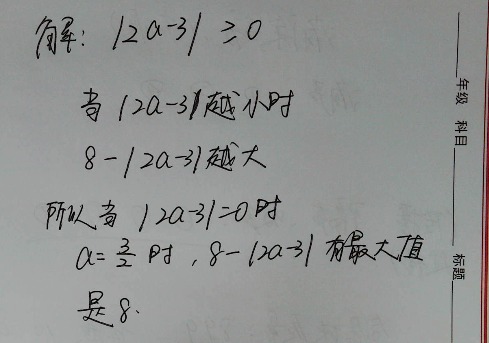 解: |2a-3| ≥0
当 |2a-3| 越小时
8-|2a-3| 越大
所以当 |2a-3|=0时
a=3/2 时, 8-|2a-3| 有最大值
是 8.
年级 科目
标题